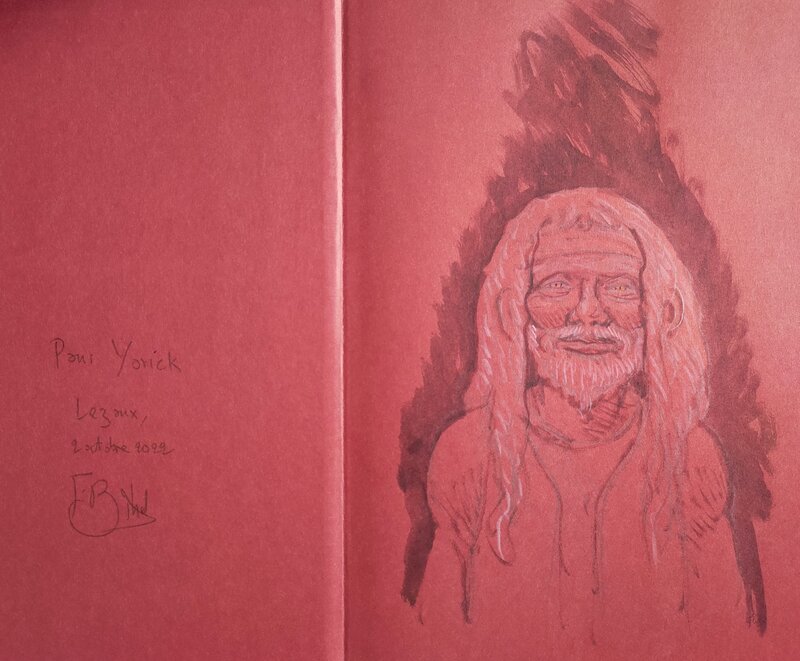 Pour Yorick
Lezoux,
2 octobre 2022